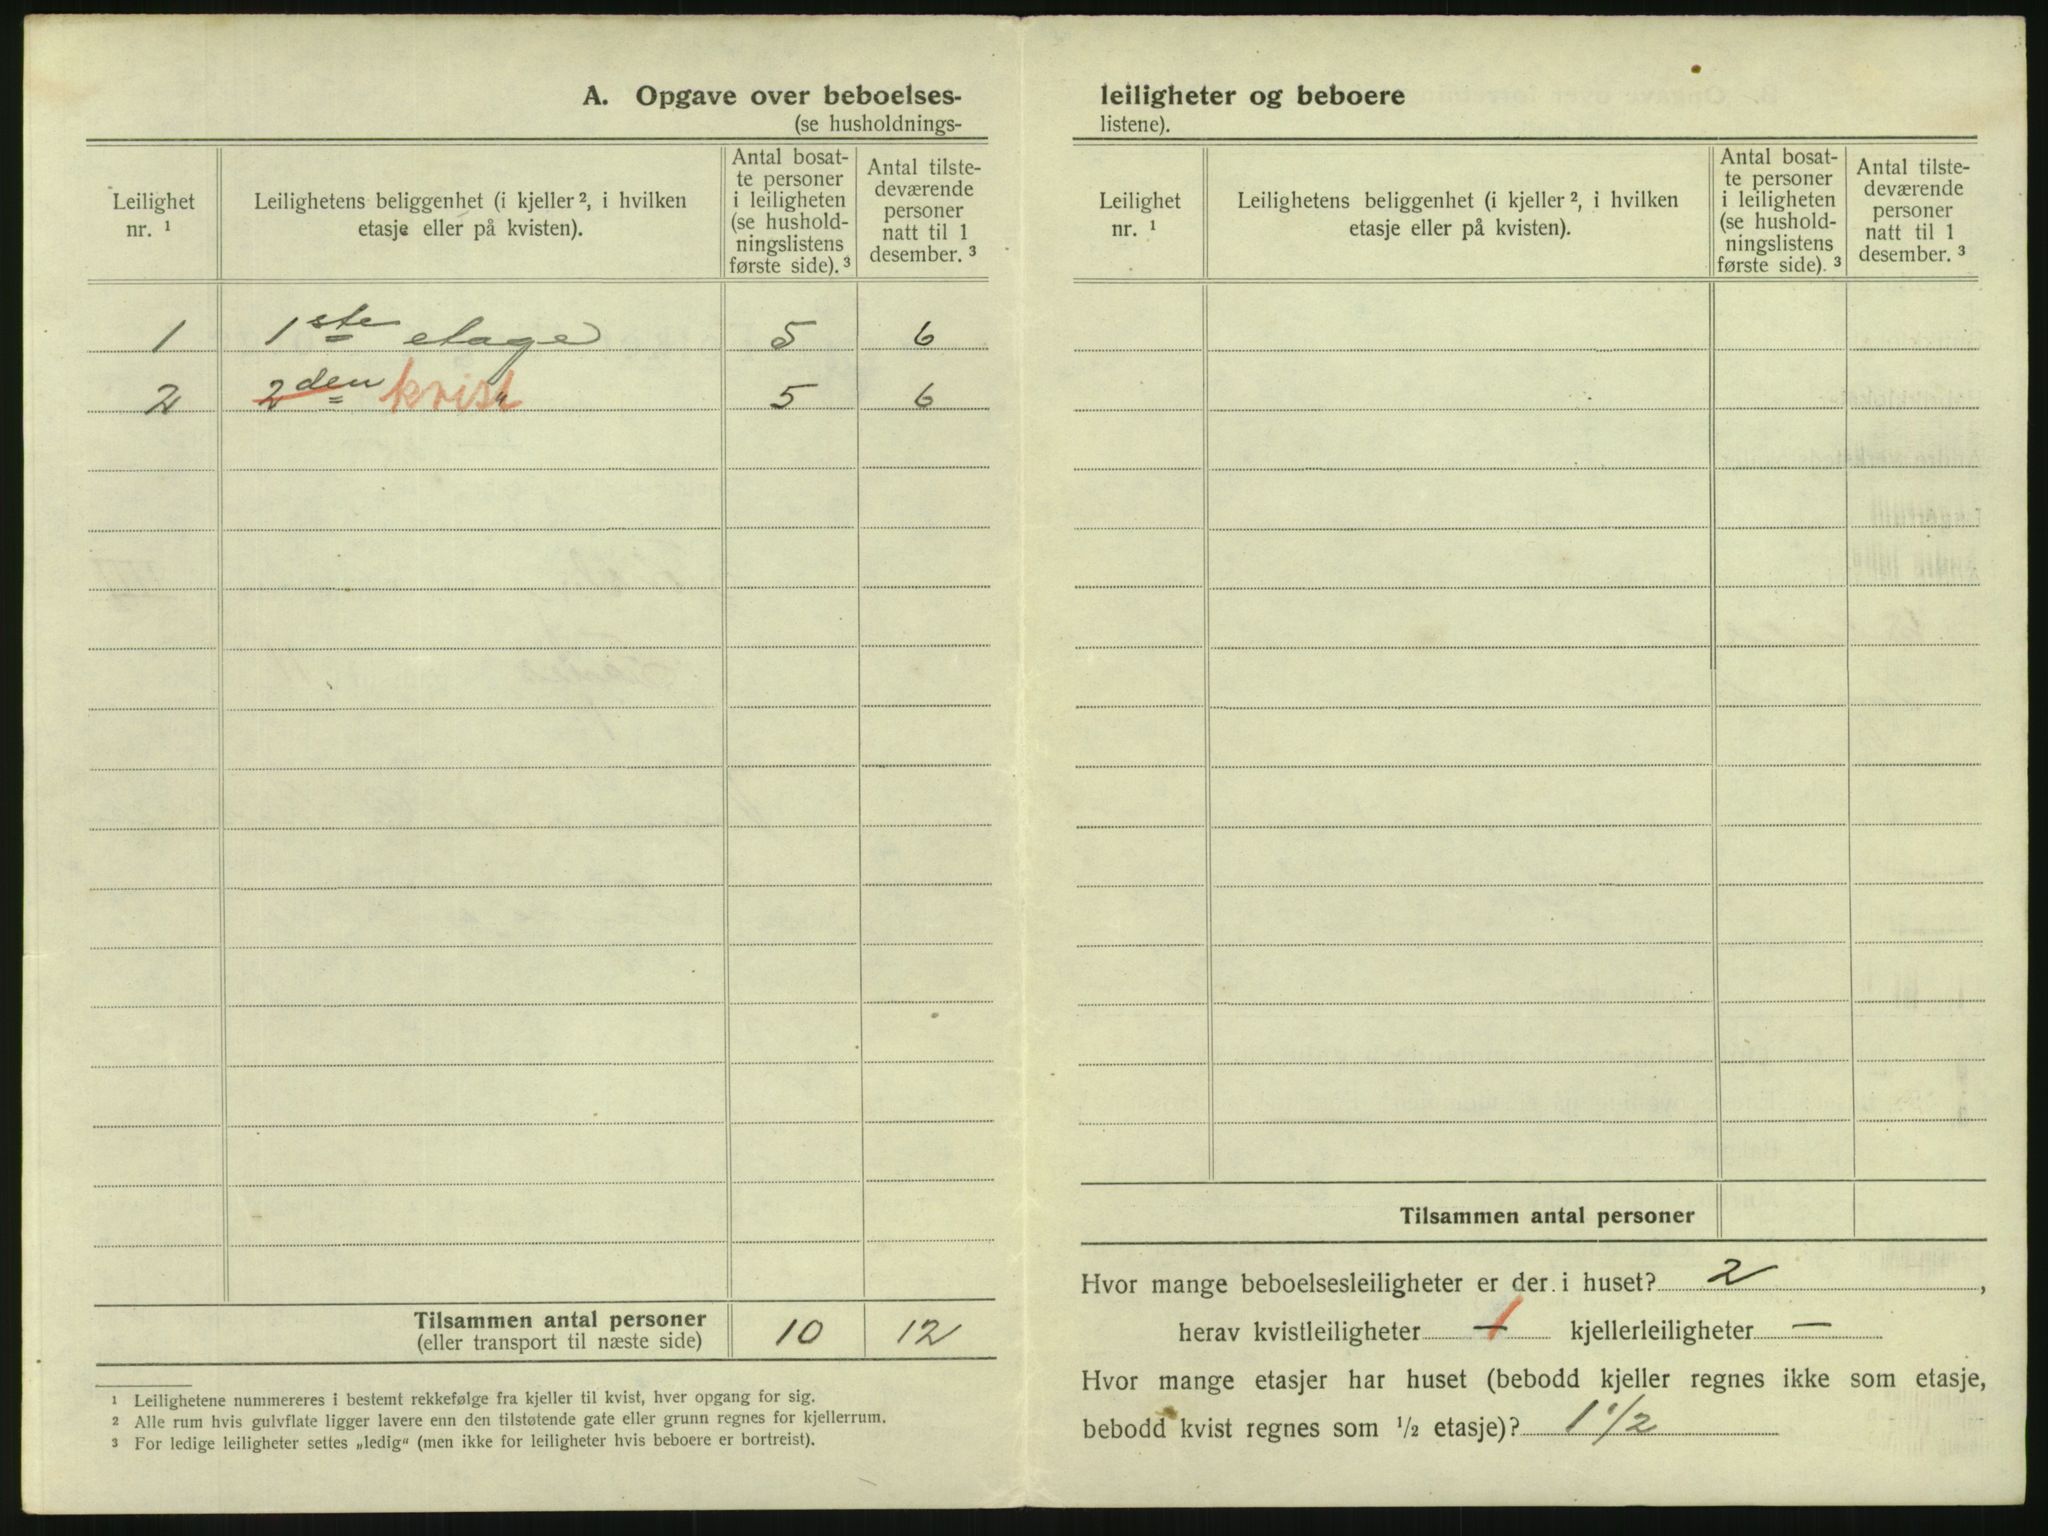 A. Opgave over beboelses-
(se husholdnings-
Leilighet
nr. ¹
Leilighetens beliggenhet (i kjeller ², i hvilken
etasje eller på kvisten).
Antal bosat-
te personer
i leiligheten
(se hushold-
ningslistens
første side). ³
Antal tilste-
deværende
personer
natt til 1
desember. ³
1 1ste etage 5 6
2 2den kvist " 5 6
Tilsammen antal personer
(eller transport til næste side)
10 12
¹ Leilighetene nummereres i bestemt rekkefølge fra kjeller til kvist, hver opgang for sig.
² Alle rum hvis gulvflate ligger lavere enn den tilstøtende gate eller grunn regnes for kjellerrum.
³ For ledige leiligheter settes „ledig“ (men ikke for leiligheter hvis beboere er bortreist).
leiligheter og beboere
listene).
Leilighet
nr. ¹
Leilighetens beliggenhet (i kjeller ², i hvilken
etasje eller på kvisten).
Antal bosat-
te personer
i leiligheten
(se hushold-
ningslistens
første side). ³
Antal tilste-
deværende
personer
natt til 1
desember. ³
Tilsammen antal personer
Hvor mange beboelsesleiligheter er der i huset? 2,
herav kvistleiligheter — 1 kjellerleiligheter —
Hvor mange etasjer har huset (bebodd kjeller regnes ikke som etasje,
bebodd kvist regnes som ½ etasje)? 1 1/2